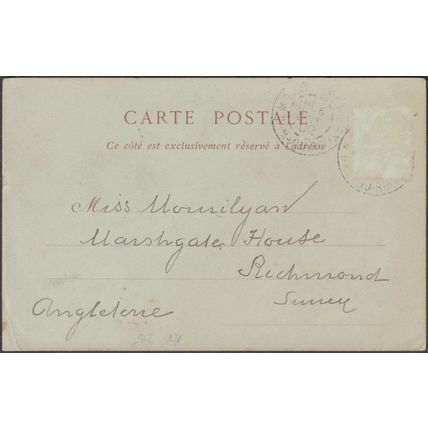 CARTE POSTALE
Ce côté est exclusivement réservé à l'adresse
Miss Mourilyan
Marshgate House
Richmond
Surrey
Angleterre